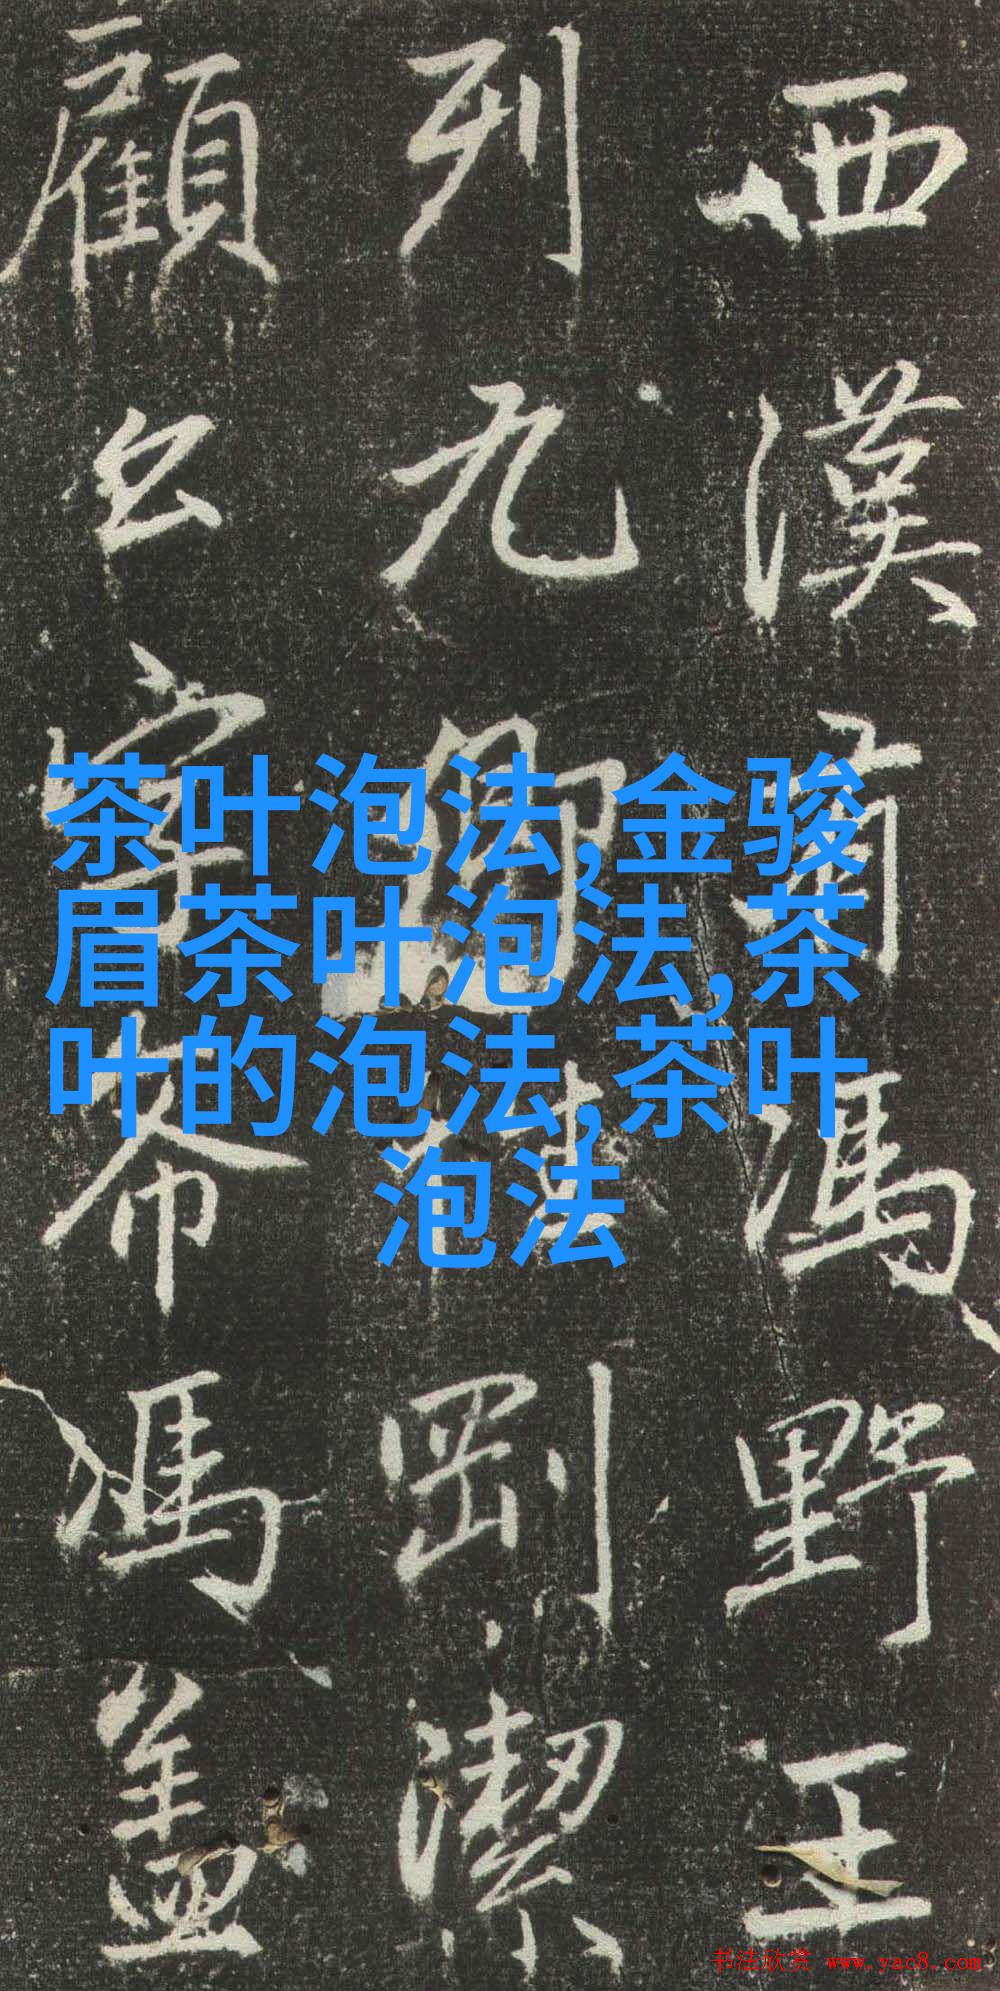 西漢有馮野王
列九卿剛潔
顧公字希馮蓋
茶叶泡法,金骏
眉茶叶泡法,茶
叶的泡法,茶叶
泡法
书法欣赏 www.yac8.com